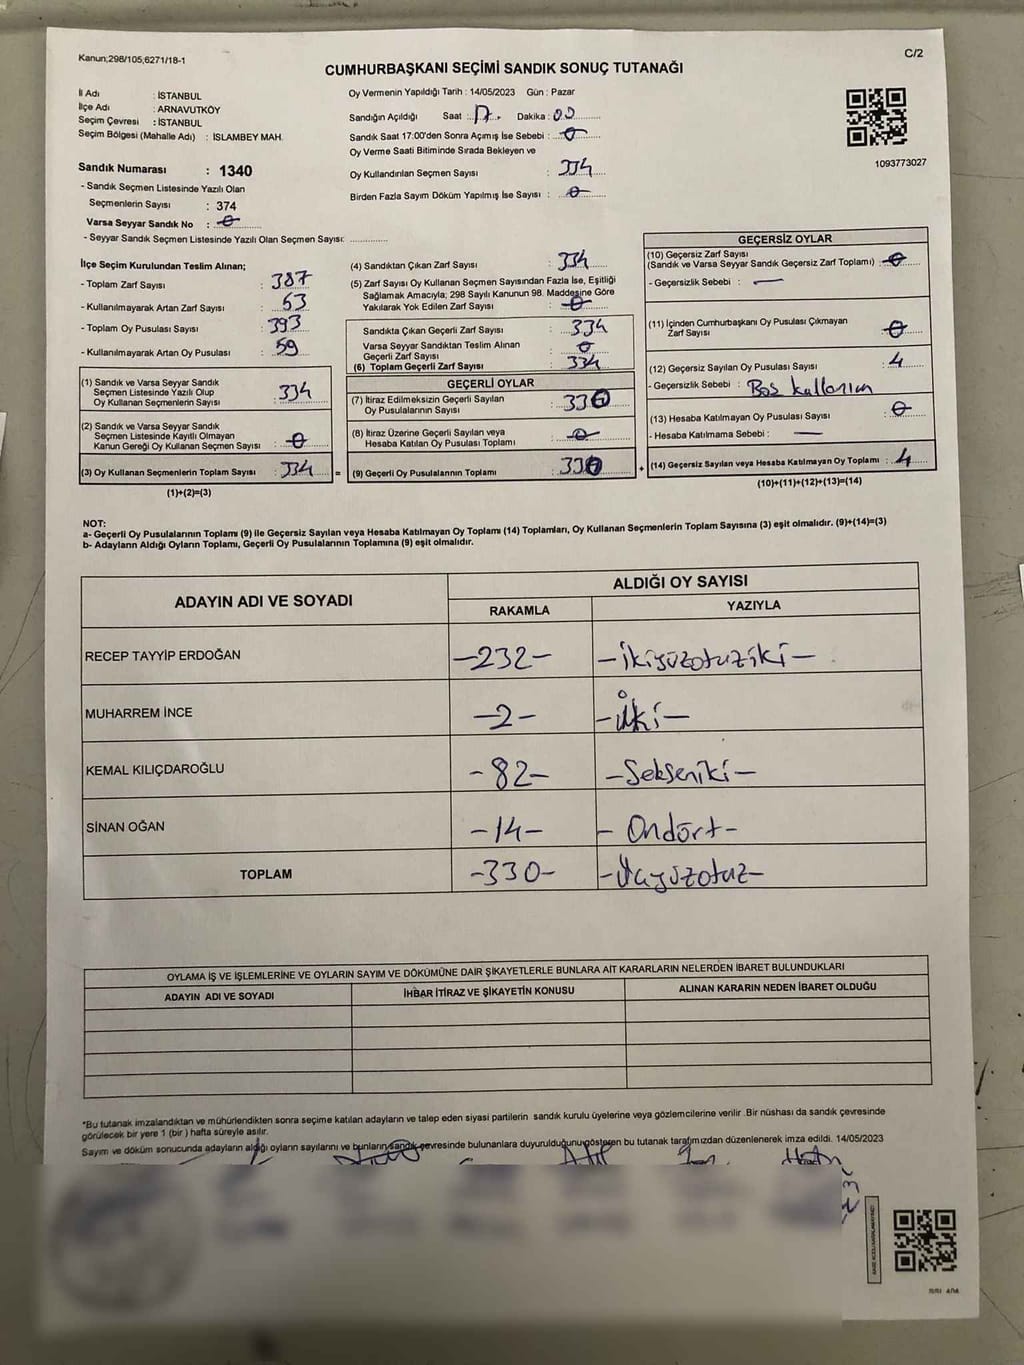 Kanun;298/105,6271/18-1
C/2
CUMHURBAŞKANI SEÇİMİ SANDIK SONUÇ TUTANAĞI
İl Adı : İSTANBUL
İlçe Adı : ARNAVUTKÖY
Seçim Çevresi : İSTANBUL
Seçim Bölgesi (Mahalle Adı) : İSLAMBEY MAH.
Sandık Numarası : 1340
- Sandık Seçmen Listesinde Yazılı Olan
Seçmenlerin Sayısı : 374
Varsa Seyyar Sandık No : 0
- Seyyar Sandık Seçmen Listesinde Yazılı Olan Seçmen Sayısı: ..............
Oy Vermenin Yapıldığı Tarih : 14/05/2023 Gün : Pazar
Sandığın Açıldığı Saat : 17. Dakika : 00
Sandık Saat 17:00'den Sonra Açımış İse Sebebi : 0
Oy Verme Saati Bitiminde Sırada Bekleyen ve
Oy Kullandırılan Seçmen Sayısı : 334
Birden Fazla Sayım Döküm Yapılmış İse Sayısı : 0
1093773027
İlçe Seçim Kurulundan Teslim Alınan;
- Toplam Zarf Sayısı : 387
- Kullanılmayarak Artan Zarf Sayısı : 53
- Toplam Oy Pusulası Sayısı : 393
- Kullanılmayarak Artan Oy Pusulası : 59
(1) Sandık ve Varsa Seyyar Sandık
Seçmen Listesinde Yazılı Olup
Oy Kullanan Seçmenlerin Sayısı : 334
(2) Sandık ve Varsa Seyyar Sandık
Seçmen Listesinde Kayıtlı Olmayan
Kanun Gereği Oy Kullanan Seçmen Sayısı : 0
(3) Oy Kullanan Seçmenlerin Toplam Sayısı : 334
(1)+(2)=(3)
(4) Sandıktan Çıkan Zarf Sayısı : 334
(5) Zarf Sayısı Oy Kullanan Seçmen Sayısından Fazla İse, Eşitliği
Sağlamak Amacıyla; 298 Sayılı Kanunun 98. Maddesine Göre
Yakılarak Yok Edilen Zarf Sayısı : 0
Sandıkta Çıkan Geçerli Zarf Sayısı : 334
Varsa Seyyar Sandıktan Teslim Alınan
Geçerli Zarf Sayısı : 0
(6) Toplam Geçerli Zarf Sayısı : 334
GEÇERLİ OYLAR
(7) İtiraz Edilmeksizin Geçerli Sayılan
Oy Pusulalarının Sayısı : 330
(8) İtiraz Üzerine Geçerli Sayılan veya
Hesaba Katılan Oy Pusulası Toplamı : 0
= (9) Geçerli Oy Pusulalarının Toplamı : 330
GEÇERSİZ OYLAR
(10) Geçersiz Zarf Sayısı
(Sandık ve Varsa Seyyar Sandık Geçersiz Zarf Toplamı) : 0
- Geçersizlik Sebebi : —
(11) İçinden Cumhurbaşkanı Oy Pusulası Çıkmayan
Zarf Sayısı : 0
(12) Geçersiz Sayılan Oy Pusulası Sayısı : 4
- Geçersizlik Sebebi : Boş kullanım
(13) Hesaba Katılmayan Oy Pusulası Sayısı : 0
- Hesaba Katılmama Sebebi : —
+ (14) Geçersiz Sayılan veya Hesaba Katılmayan Oy Toplamı : 4
(10)+(11)+(12)+(13)=(14)
NOT:
a- Geçerli Oy Pusulalarının Toplamı (9) ile Geçersiz Sayılan veya Hesaba Katılmayan Oy Toplamı (14) Toplamları, Oy Kullanan Seçmenlerin Toplam Sayısına (3) eşit olmalıdır. (9)+(14)=(3)
b- Adayların Aldığı Oyların Toplamı, Geçerli Oy Pusulalarının Toplamına (9) eşit olmalıdır.
ADAYIN ADI VE SOYADI
ALDIĞI OY SAYISI
RAKAMLA YAZIYLA
RECEP TAYYİP ERDOĞAN -232- -İkiyüzotuziki-
MUHARREM İNCE -2- -İki-
KEMAL KILIÇDAROĞLU -82- -Sekseniki-
SİNAN OĞAN -14- - Ondört-
TOPLAM -330- -Üçyüzotuz-
OYLAMA İŞ VE İŞLEMLERİNE VE OYLARIN SAYIM VE DÖKÜMÜNE DAİR ŞİKAYETLERLE BUNLARA AİT KARARLARIN NELERDEN İBARET BULUNDUKLARI
ADAYIN ADI VE SOYADI İHBAR İTİRAZ VE ŞİKAYETİN KONUSU ALINAN KARARIN NEDEN İBARET OLDUĞU
*Bu tutanak imzalandıktan ve mühürlendikten sonra seçime katılan adayların ve talep eden siyasi partilerin sandık kurulu üyelerine veya gözlemcilerine verilir .Bir nüshası da sandık çevresinde
görülecek bir yere 1 (bir ) hafta süreyle asılır.
Sayım ve döküm sonucunda adayların aldığı oyların sayılarını ve bunların sandık çevresinde bulunanlara duyurulduğunu gösteren bu tutanak tarafımızdan düzenlenerek imza edildi. 14/05/2023